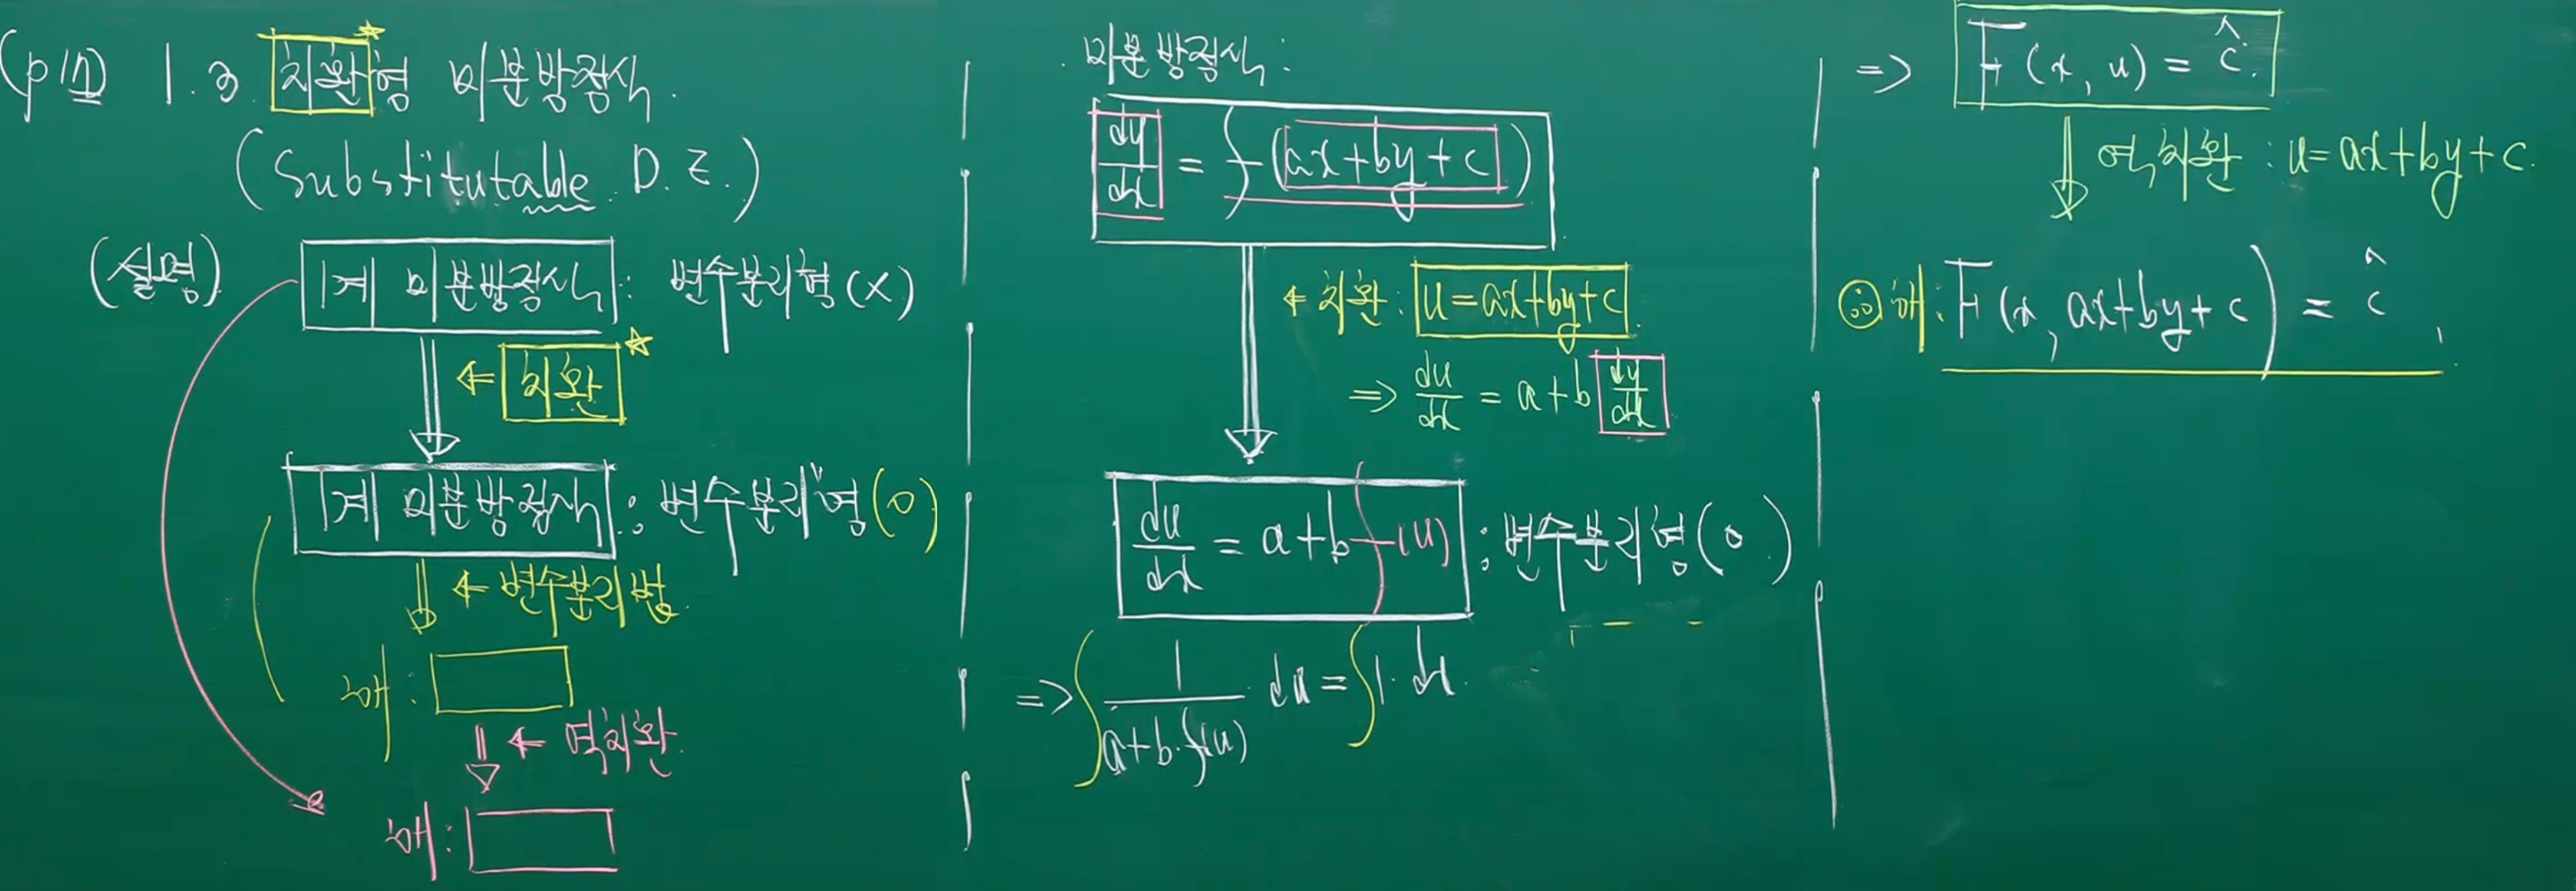 (p17) 1.3 치환형 미분방정식.
(Substitutable D.E.)
(설명) 1계 미분방정식 : 변수분리형(X)
⇐ 치환
1계 미분방정식 : 변수분리형(O)
⇐ 변수분리법
해 :
⇐ 역치환.
해 :
미분방정식 :
dy/dx = f(ax+by+c)
⇐ 치환 : u=ax+by+c.
⇒ du/dx = a+b dy/dx
du/dx = a+b f(u) : 변수분리형(O)
⇒ ∫ 1/(a+b·f(u)) du = ∫ 1·dx.
⇒ F(x, u) = ĉ.
⇓ 역치환 : u=ax+by+c.
∴ 해 : F(x, ax+by+c) = ĉ.